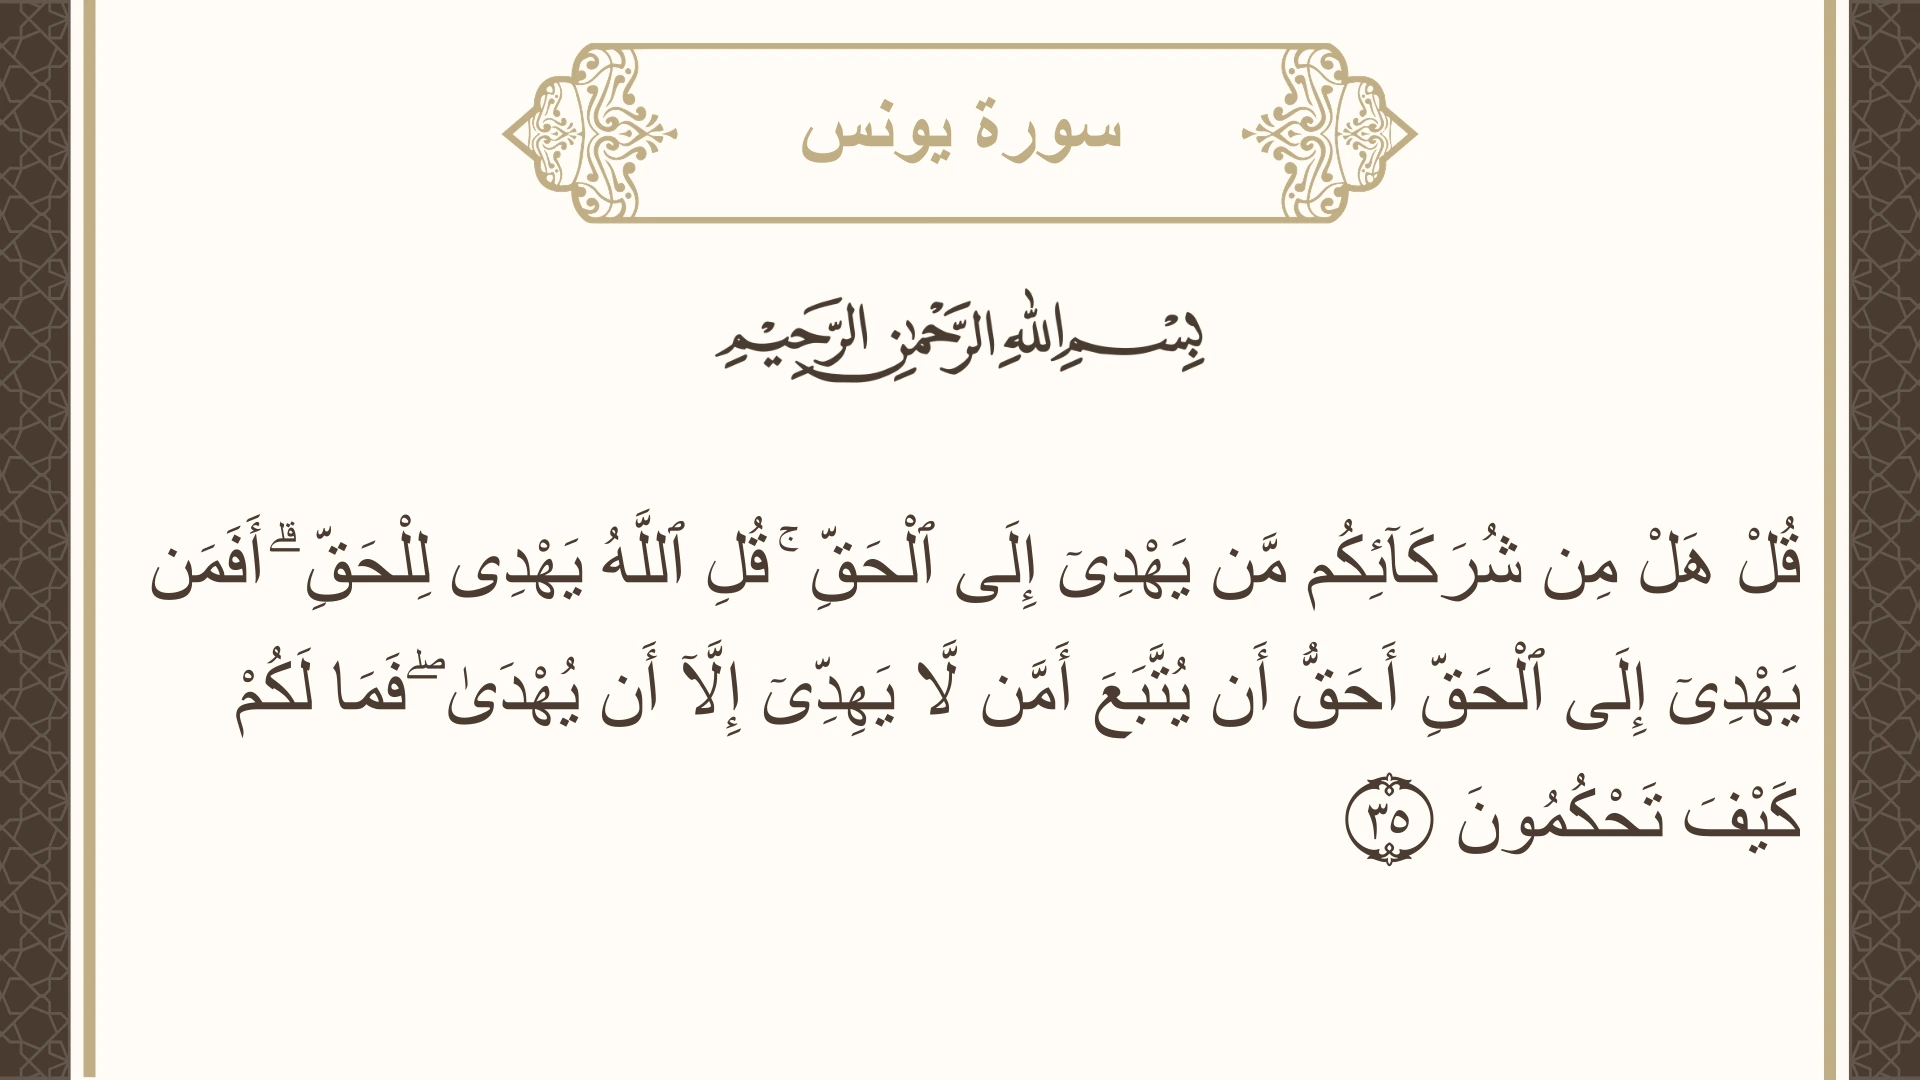 سورة يونس
بِسْمِ اللهِ الرَّحْمٰنِ الرَّحِيْمِ
قُلْ هَلْ مِن شُرَكَآئِكُم مَّن يَهْدِىٓ إِلَى ٱلْحَقِّ ۚ قُلِ ٱللَّهُ يَهْدِى لِلْحَقِّ ۗ أَفَمَن
يَهْدِىٓ إِلَى ٱلْحَقِّ أَحَقُّ أَن يُتَّبَعَ أَمَّن لَّا يَهِدِّىٓ إِلَّآ أَن يُهْدَىٰ ۖ فَمَا لَكُمْ
كَيْفَ تَحْكُمُونَ ٣٥